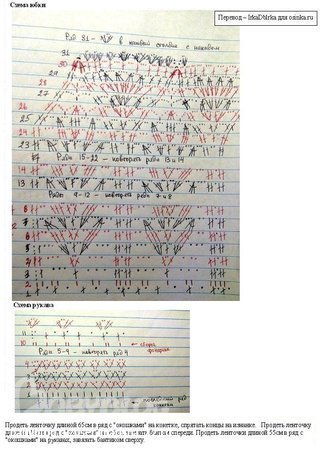 Схема юбки
Перевод – IrkaDbIrka для osinka.ru
Ряд 31 - в каждый столбик с накидом
31
30
29
28
27
26
25
24
23
Ряды 15-22 - повторять ряды 13 и 14
14
13
Ряды 9-12 - повторять ряды 7 и 8
8
7
6
5
4
3
2
1
Схема рукава
11
10
Ряды 5-9 - повторять ряд 4
4
3
2
1
Продеть ленточку длиной 65см в ряд с "окошками" на кокетке, спрятать концы на изнанке. Продеть ленточку
спереди. Продеть ленточки длиной 55см в ряд с
"окошками" на рукавах, завязать бантиком сверху.